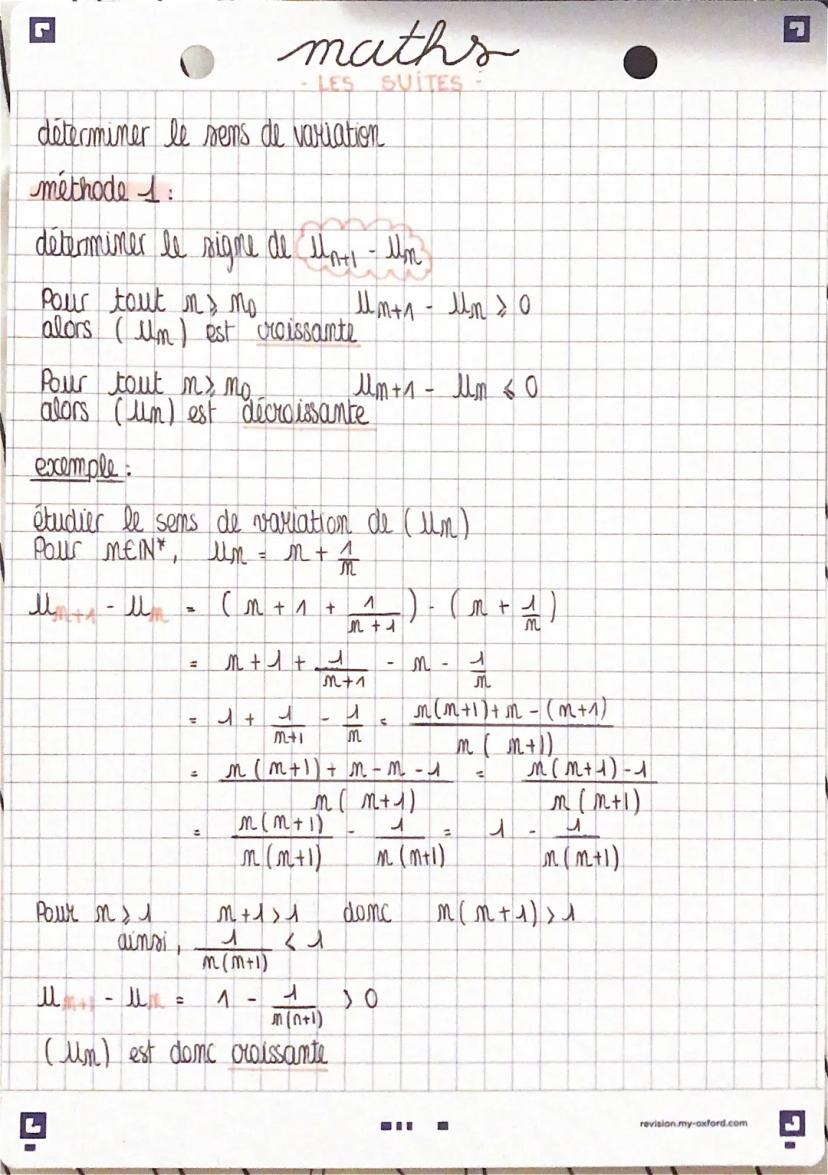 maths
- LES SUITES -
déterminer le sens de variation
méthode 1 :
déterminer le signe de Un+1 - Un
Pour tout n ⩾ n0 Un+1 - Un ⩾ 0
alors (Un) est croissante
Pour tout n ⩾ n0 Un+1 - Un ⩽ 0
alors (Un) est décroissante
exemple :
étudier le sens de variation de (Un)
Pour n∈ℕ*, Un = n + 1/n
Un+1 - Un = (n + 1 + 1/(n+1)) - (n + 1/n)
= n + 1 + 1/(n+1) - n - 1/n
= 1 + 1/(n+1) - 1/n = (n(n+1) + n - (n+1))/(n(n+1))
= (n(n+1) + n - n - 1)/(n(n+1)) = (n(n+1) - 1)/(n(n+1))
= n(n+1)/(n(n+1)) - 1/(n(n+1)) = 1 - 1/(n(n+1))
Pour n ⩾ 1 n+1 > 1 donc n(n+1) > 1
ainsi, 1/(n(n+1)) < 1
Un+1 - Un = 1 - 1/(n(n+1)) > 0
(Un) est donc croissante
revision.my-oxford.com